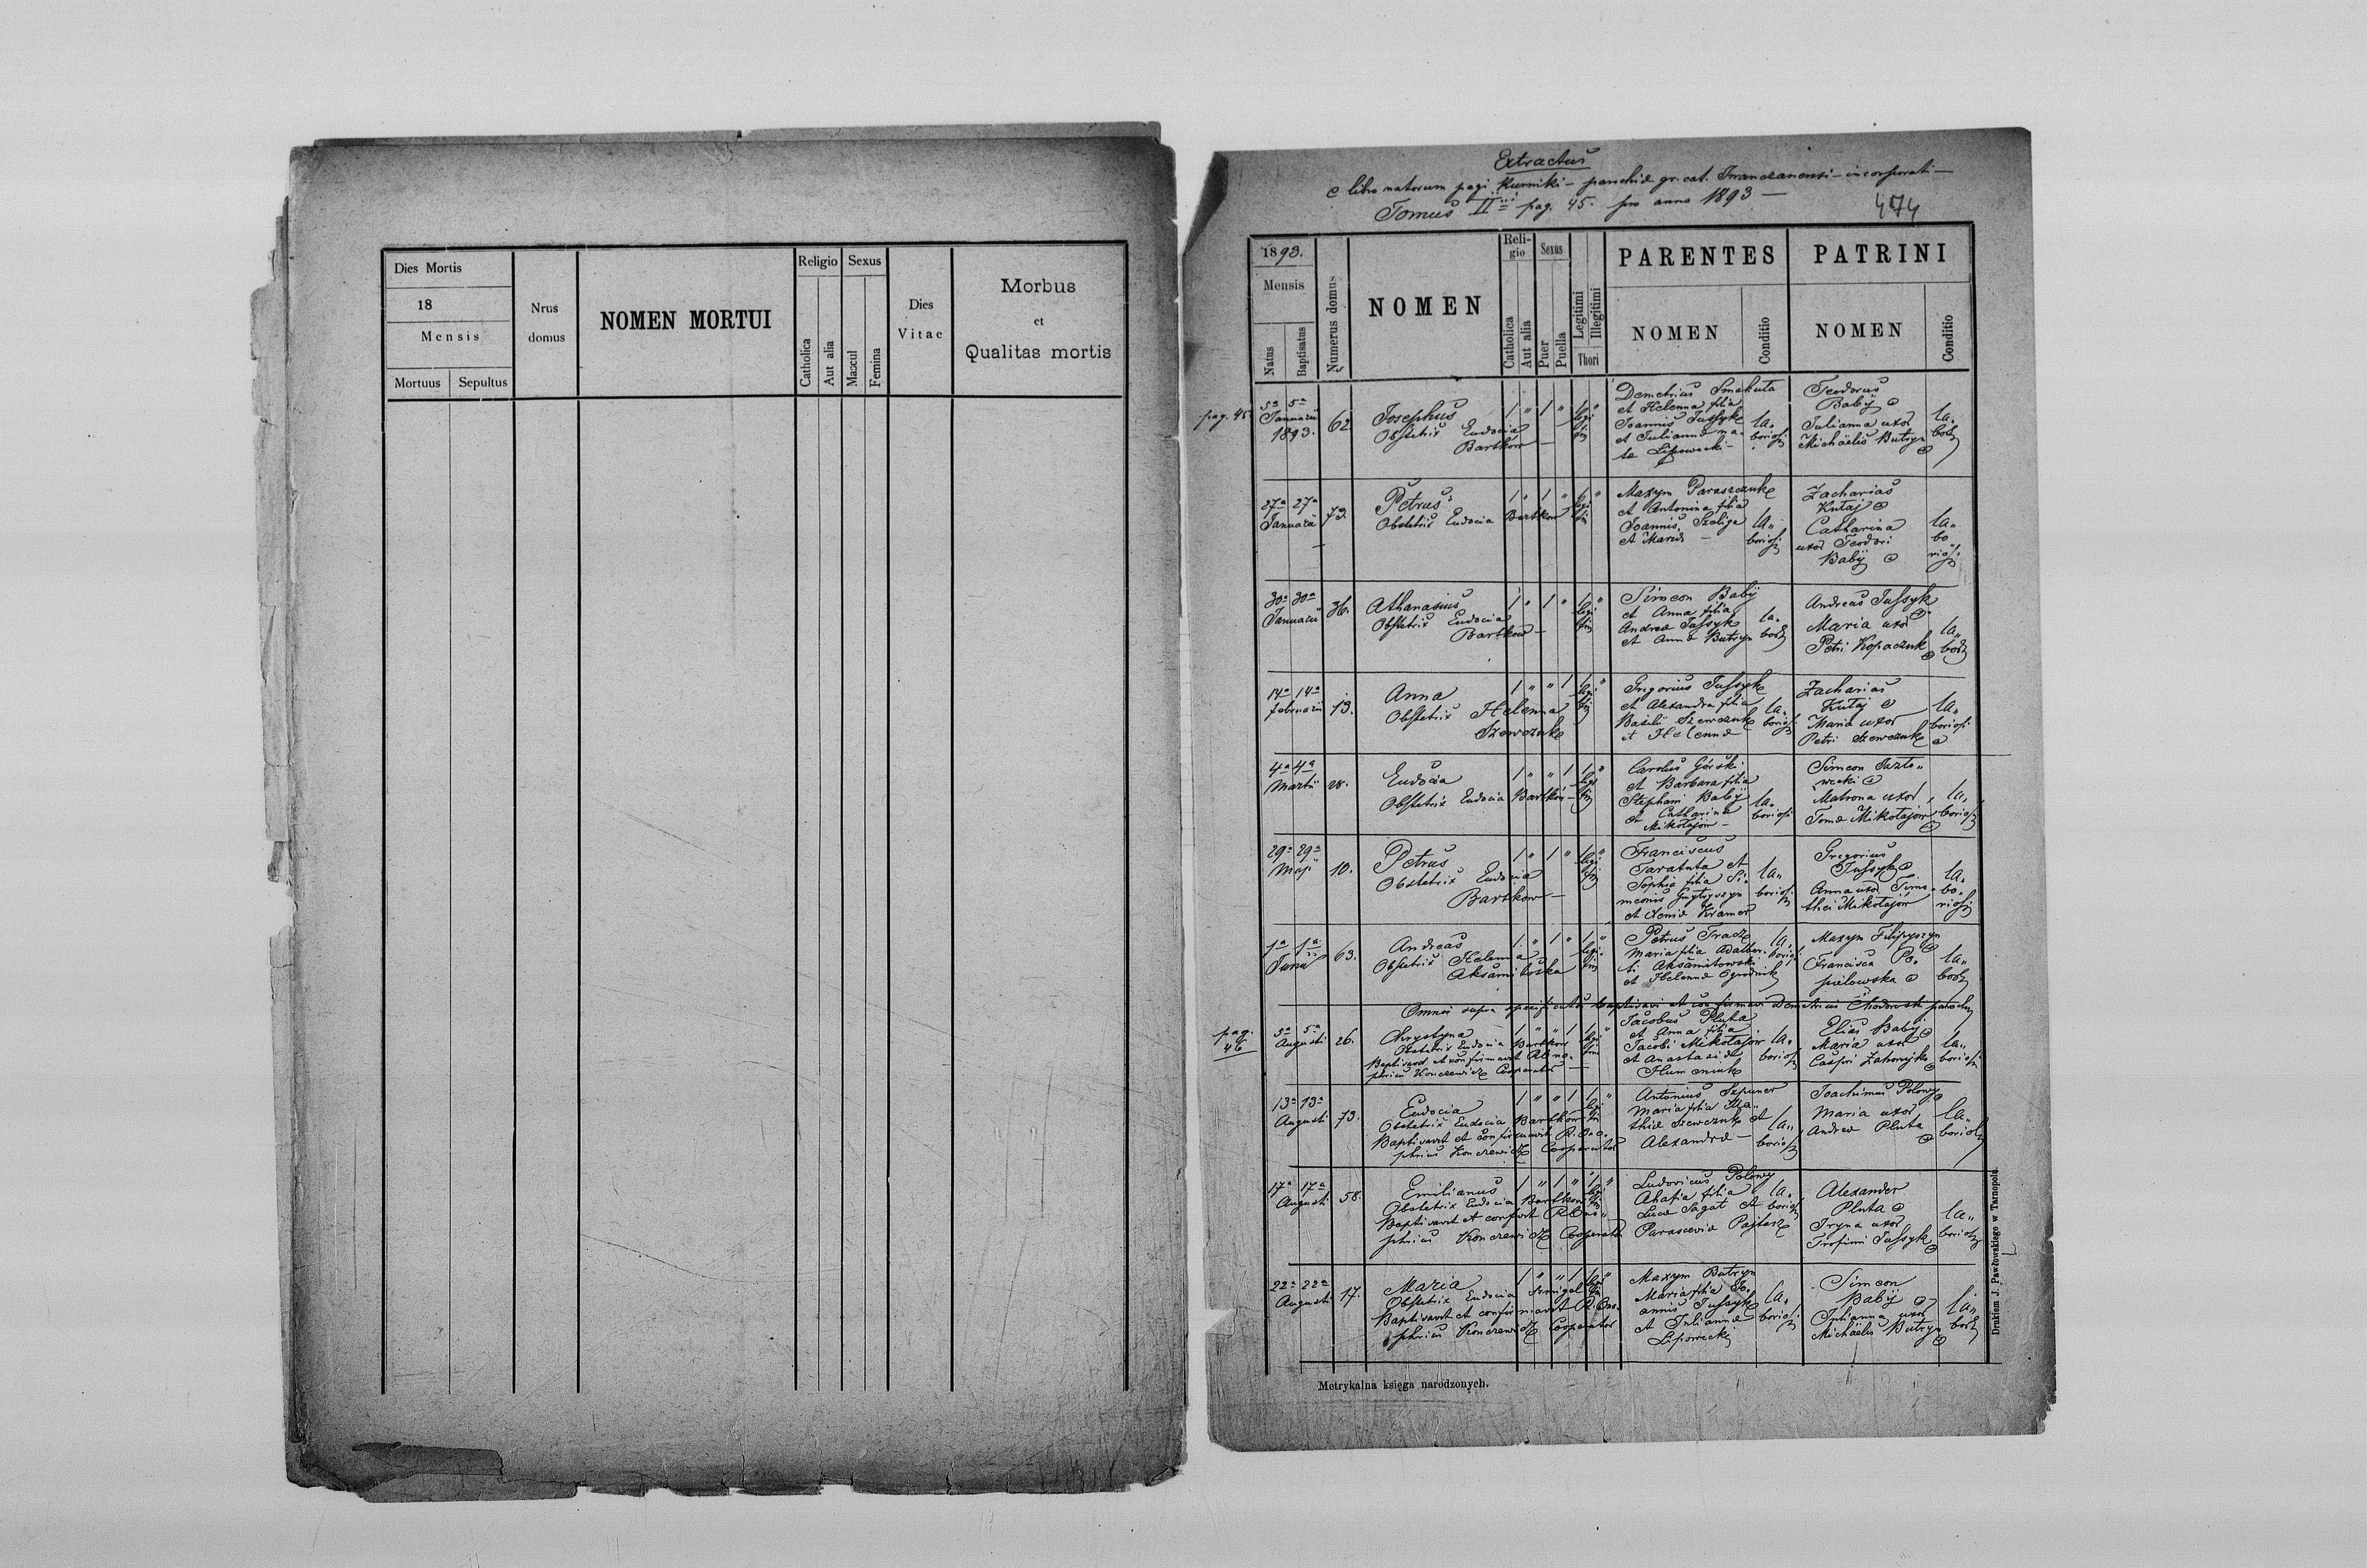 Dies Mortis
18
Mensis
Mortuus Sepultus
Nrus
domus
NOMEN MORTUI
Religio
Catholica
Aut alia
Sexus
Mascul
Femina
Dies
Vitae
Morbus
et
Qualitas mortis
Extractus
e libro natorum pagi Kurniki – parochiæ gr. cat. Iwanczanensi – incorporati –
Tomus II pag. 45. pro anno 1893 –
474
1893.
Mensis
Natus
Baptisatus
Numerus domus
NOMEN
Reli-
gio
Catholica
Aut alia
Sexus
Puer
Puella
Legitimi
Illegitimi
Thori
PARENTES
NOMEN
Conditio
PATRINI
NOMEN
Conditio
pag. 45
5a 5a
Januarii
1893.
62.
Josephus
Obstetrix Eudocia
Bartkow –
1 " 1 " 1 "
legi
tim
Demetrius Smakuta
et Helenna filia
Joannis Jussyk
et Juliannæ na-
tæ Lipowecki –
la„
boriosi
Teodorus
Babij
Julianna uxor
Michäelis Butryn
la„
bor
27a 27a
Januarii
73.
Petrus
Obstetrix Eudocia Bartkow
1 " 1 " 1 "
legi
tim
Maxym Paraszczuk
et Antonina filia
Joannis Szeliga
et Mariæ –
la„
boriosi
Zacharias
Kutaj
Catharina
uxor Teodori
Babij
la„
bo
riosi
30a 30a
Januarii
36.
Athanasius
Obstetrix Eudocia
Bartkow –
1 " 1 " 1 "
legi
tim
Simeon Babij
et Anna filia
Andreæ Jussyk
et Annæ Butryn
la„
bor
Andreas Jussyk
Maria uxor
Petri Kopaczuk
la„
bor
14a 14a
Februarii
13.
Anna
Obstetrix Helenna
Szewczuk
1 " " 1 1 "
legi
tim
Gregorius Jussyk
et Alexandra filia
Basilii Szewczuk
et Helennæ
la„
boriosi
Zacharias
Kutaj
Maria uxor
Petri Szewczuk
la„
boriosi
4a 4a
Martii
28.
Eudocia
Obstetrix Eudocia Bartkow –
1 " " 1 1 "
legi
tim
Carolus Górski
et Barbara filia
Stephani Babij
et Catharinæ
Mikołajow –
la„
boriosi
Simeon Jazło„
wecki
Matrona uxor
Tomæ Mikołajow
la„
boriosi
29a 29a
Maji
10.
Petrus
Obstetrix Eudocia
Bartkow –
1 " 1 " 1 "
legi
tim
Franciscus
Taratuta et
Sophia filia Si„
meonis
et Xeniæ Kramer
la„
boriosi
Gregorius
Jussyk
Anna uxor Timo„
thei Mikołajow
la„
bo„
riosi
1a 1a
Junii
63.
Andreas
Obstetrix Helenna
Aksamitowska
1 " 1 " 1 "
legi
tim
Petrus Tracz
Maria filia Adalber„
ti Aksamitowski
et Helennæ Ogrodnik
la„
boriosi
Maxym Filipyszyn
Francisca Po„
pielowska
la„
bor
Omnes supra specificatos baptisavi et confirmavi Demetrius Chodorowski parochus
pag.
46
5a 5a
Augusti
26.
Chrystyna
Obstetrix Eudocia Bartkow
Baptisavit et confirmavit R. Ono„
phrius Konczewicz Cooperator –
1 " " 1 1 "
legi
tim
Jacobus Pluta
et Anna filia
Jacobi Mikołajow
et Anastasiæ
Humeniuk
la„
boriosi
Elias Babij
Maria uxor
Caspri Zahorujko
la„
boriosi
13a 13a
Augusti
73.
Eudocia
Obstetrix Eudocia Bartkow
Baptisavit et confirmavit R. Ono„
phrius Konczewicz Cooperator
1 " " 1 1 "
legi
tim
Antonius Szpuner
Maria filia Ma„
thiæ Szewczuk et
Alexandræ –
la„
boriosi
Joachimus Polowy
Maria uxor
Andreæ Pluta
la„
boriosi
17a 17a
Augusti
58.
Emilianus
Obstetrix Eudocia Bartkow
Baptisavit et confirvit R. Ono„
phrius Konczewicz Cooperator
1 " 1 " 1 "
legi
tim
Ludovicus Polowy
Ahafia filia
Lucæ Sagat et
Parasceviæ Pajtasz
la„
boriosi
Alexander
Pluta
Iryna uxor
Trofimi Jussyk
la„
boriosi
22a 22a
Augusti
17.
Maria
Obstetrix Eudocia Szmigel
Baptisavit et confirmavit R. Ono„
phrius Konczewicz Cooperator
1 " " 1 1 "
legi
tim
Maxym Butryn
Maria filia Jo„
annis Jussyk
et Juliannæ
Lipowecki
la„
boriosi
Simeon
Babij
Julianna uxor
Michäelis Butryn
la„
bor
Metrykalna księga narodzonych.
Drukiem J. Pawłowskiego w Tarnopolu.